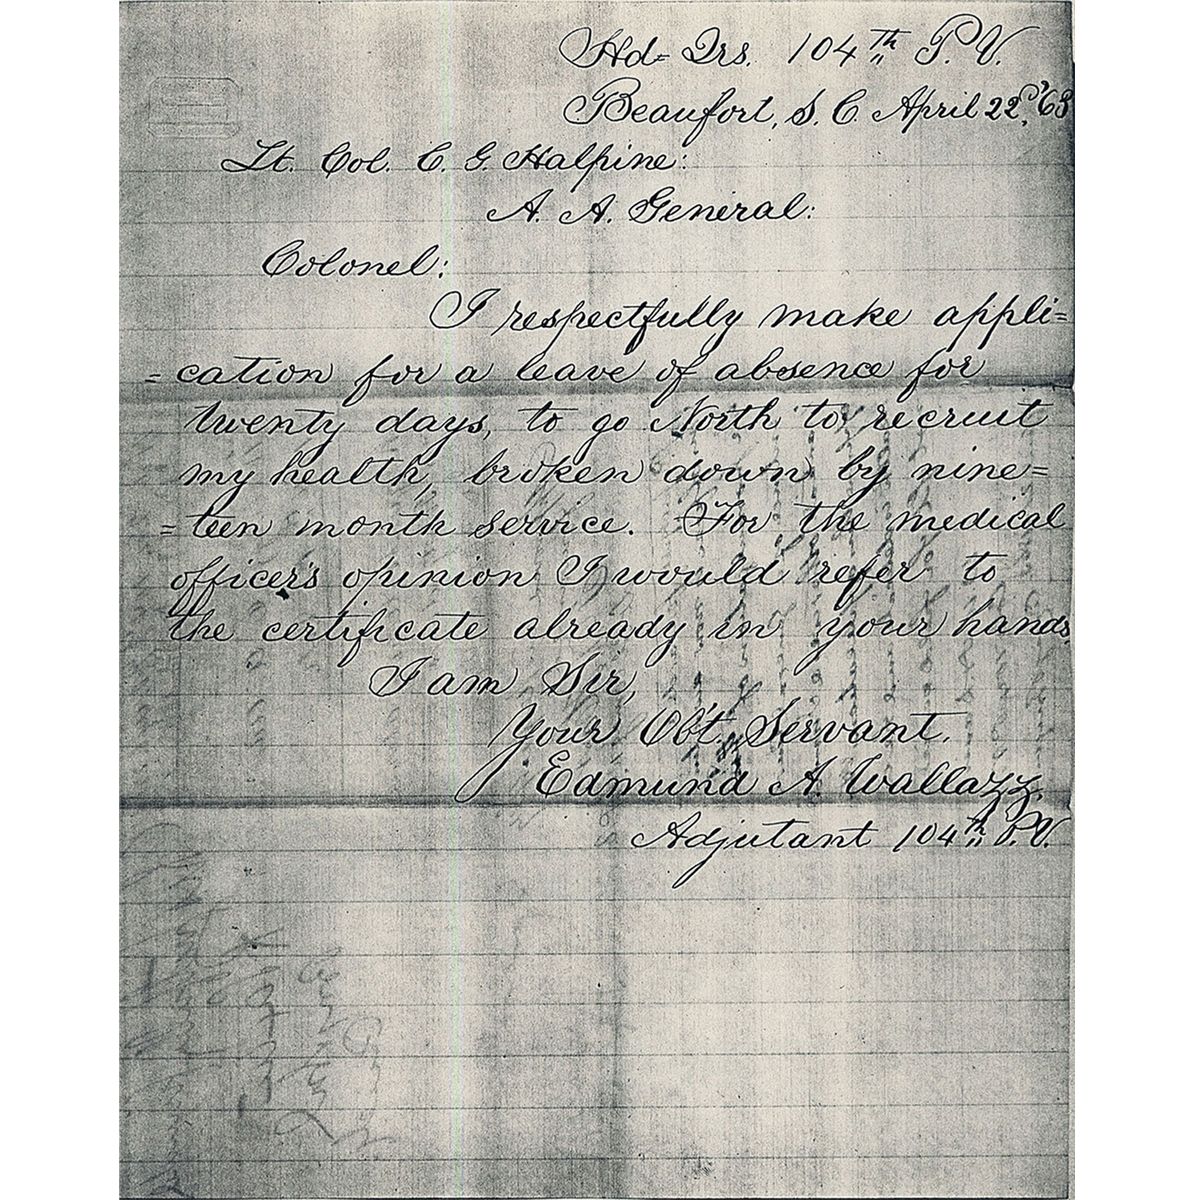 Hd= Qrs. 104th P. V.
Beaufort, S. C. April 22d, '63
Lt. Col. C. G. Halpine:
A. A. General:
Colonel:
I respectfully make appli=
=cation for a leave of absence for
twenty days, to go North to recruit
my health, broken down by nine=
=teen month service. For the medical
officer's opinion I would refer to
the certificate already in your hands
I am Sir,
Your Obt. Servant.
Edmund A. Wallazz.
Adjutant 104th P. V.